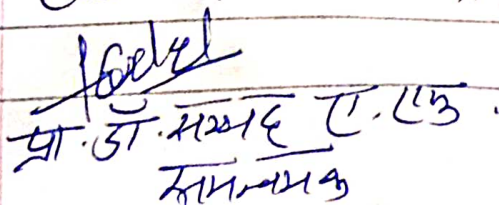 प्रा. डॉ. सय्यद ए. एफ.
समन्वयक